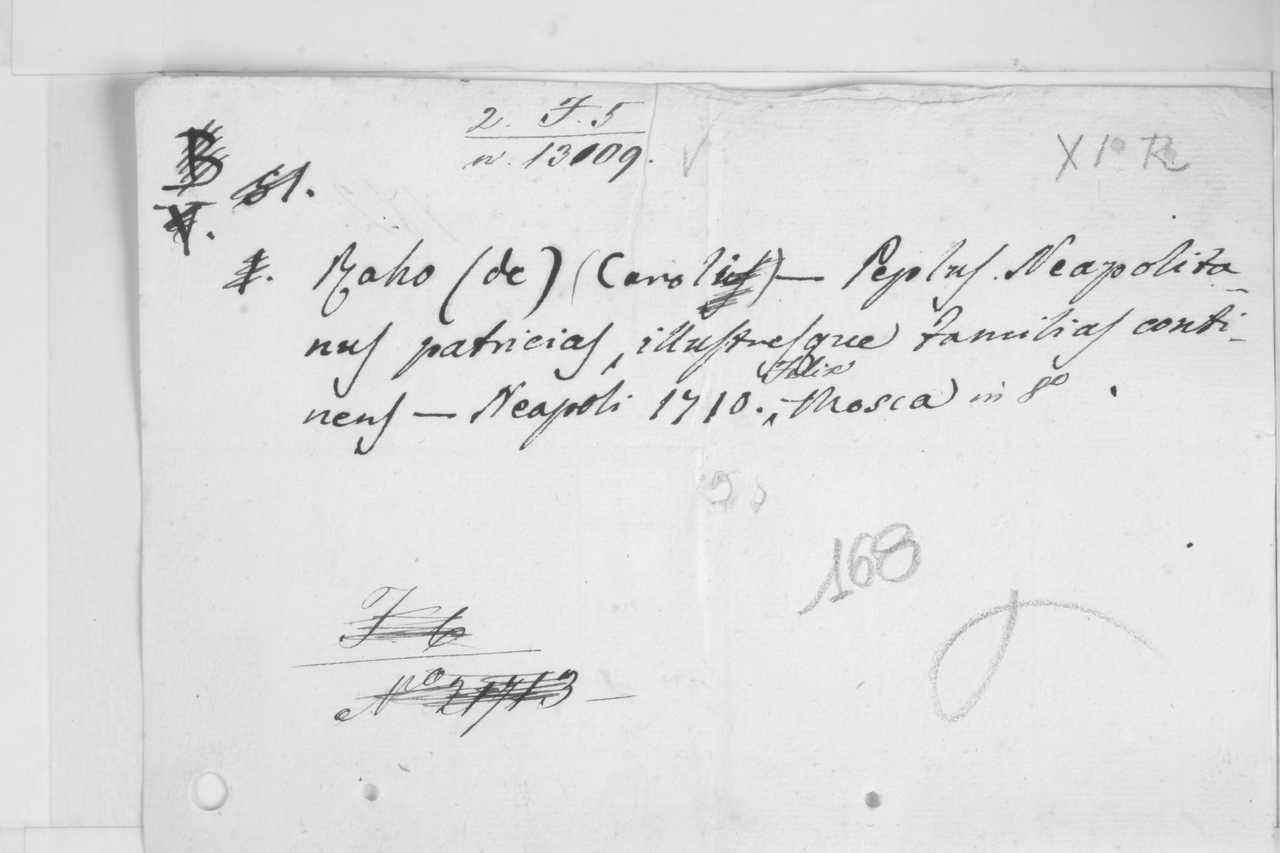 2. F. 5
n. 13009.
B
V.
51.
Raho (de) (Carolus) — Peplus Neapolita-
nus patricias, illustresque familias conti-
nens — Neapoli 1710. Felix Mosca in 8º.
168
F 6
Nº 21713 —